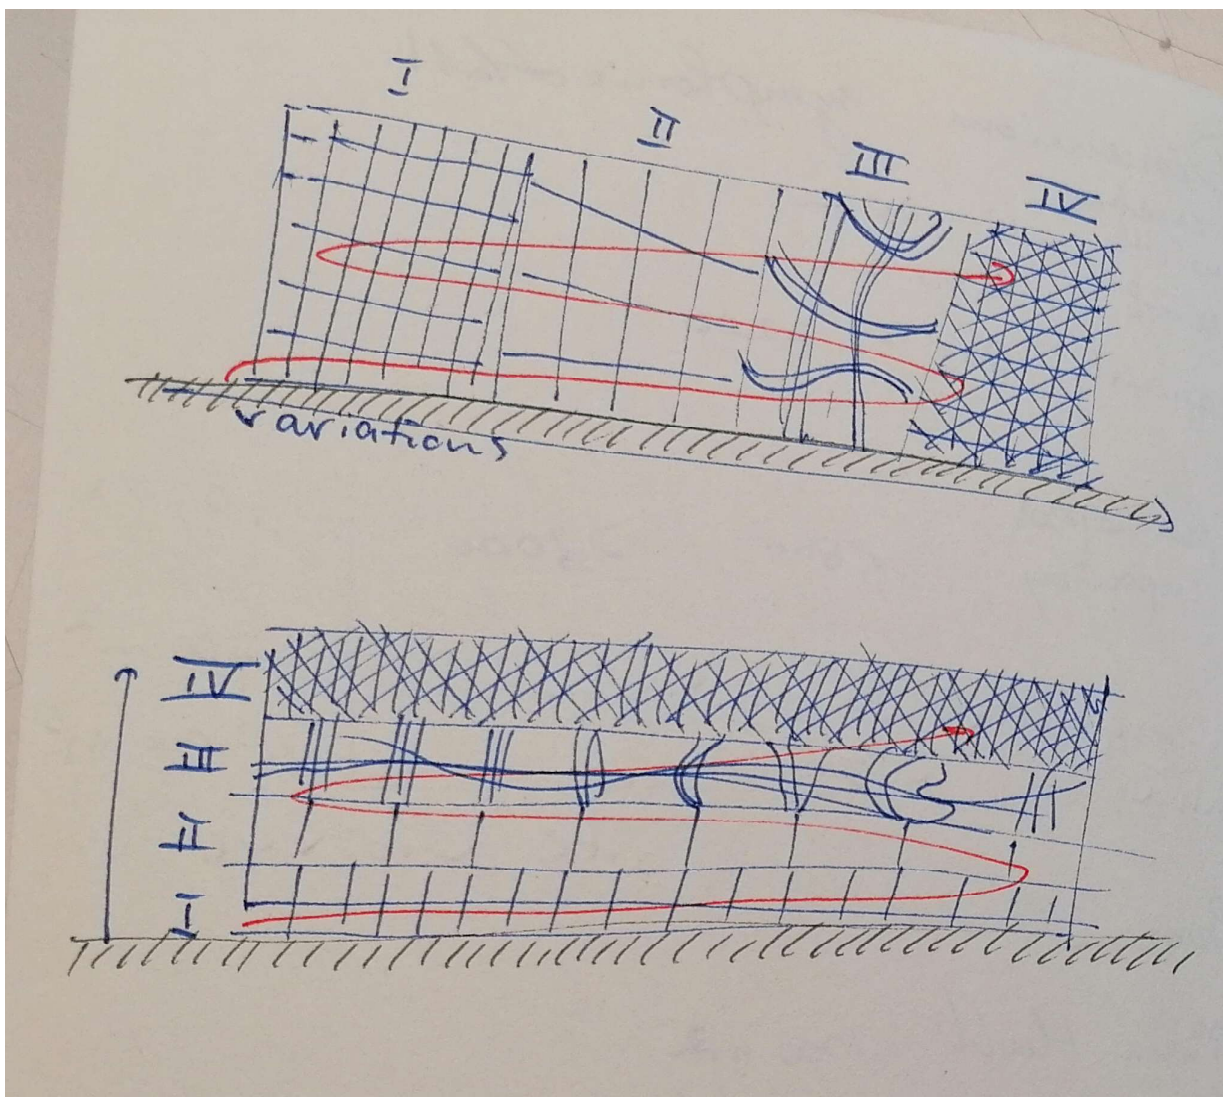 I
II
III
IV
variations
IV
III
II
I